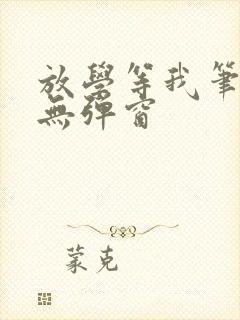 放學等我筆
無彈窗
蒙克